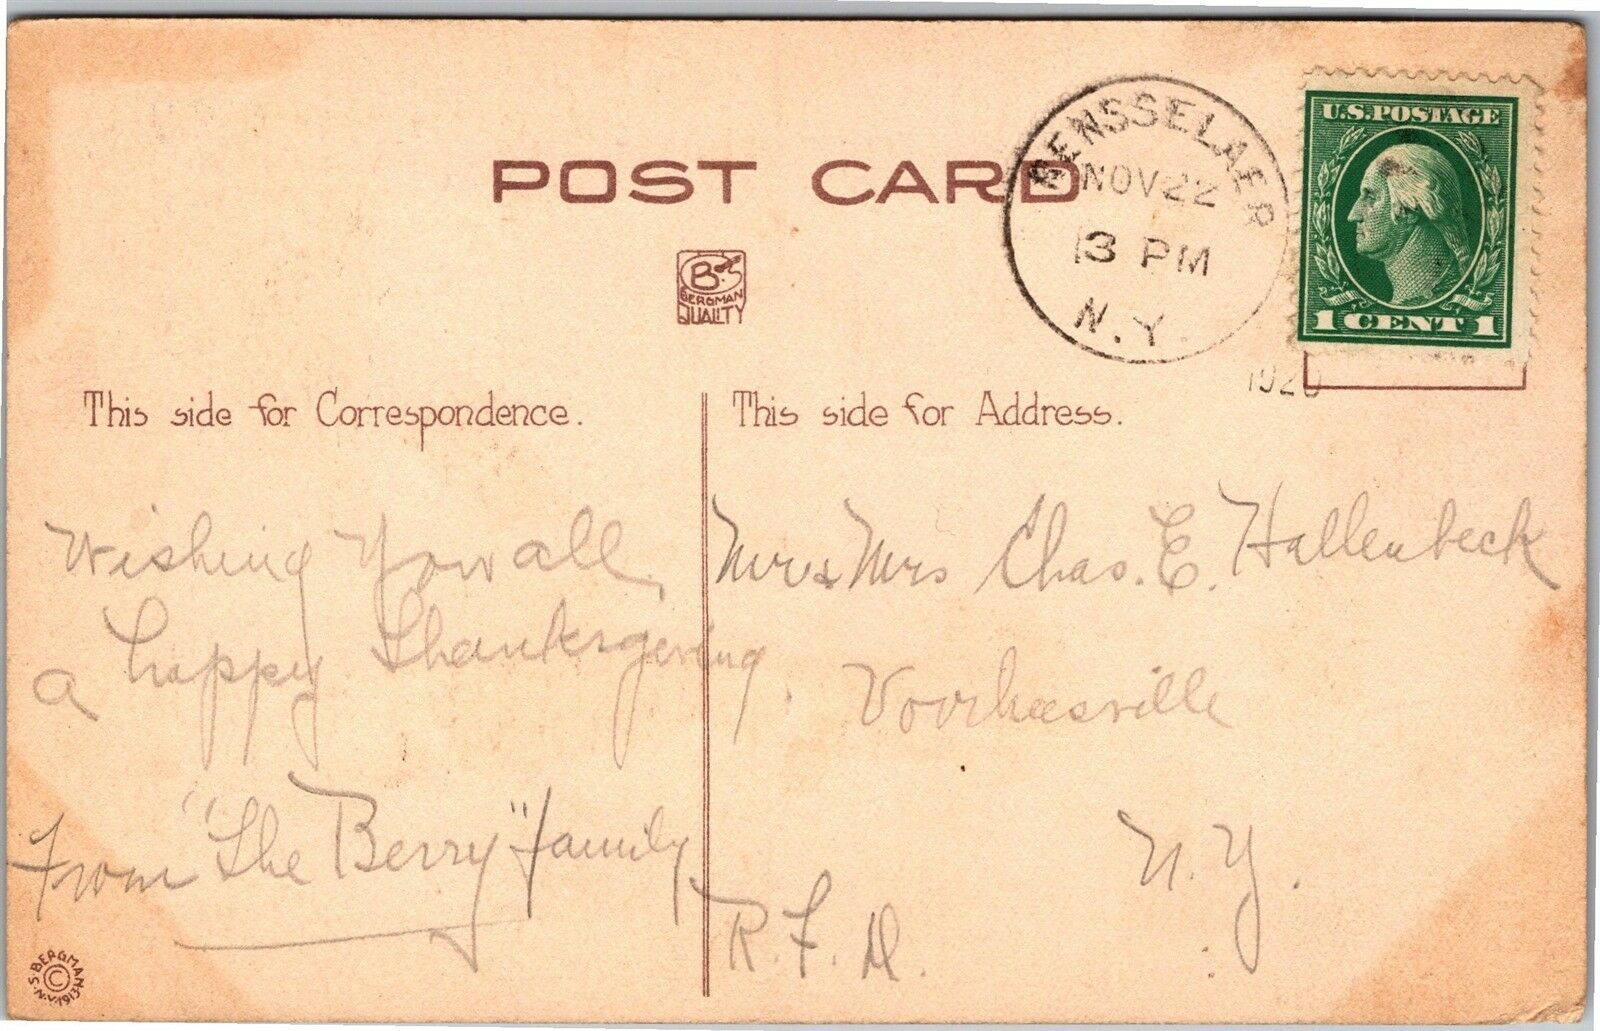 POST CARD
RENSSELAER
NOV 22
3 PM
N.Y.
1920
U.S.POSTAGE
1 CENT 1
B
BERGMAN
QUALITY
This side for Correspondence.
This side for Address.
Wishing You all
a happy Thanksgiving.
From "The Berry" family
Mr & Mrs Chas. E. Hallenbeck
Voorheesville
N. Y.
R. F. D.
© S. BERGMAN N.Y. 1913